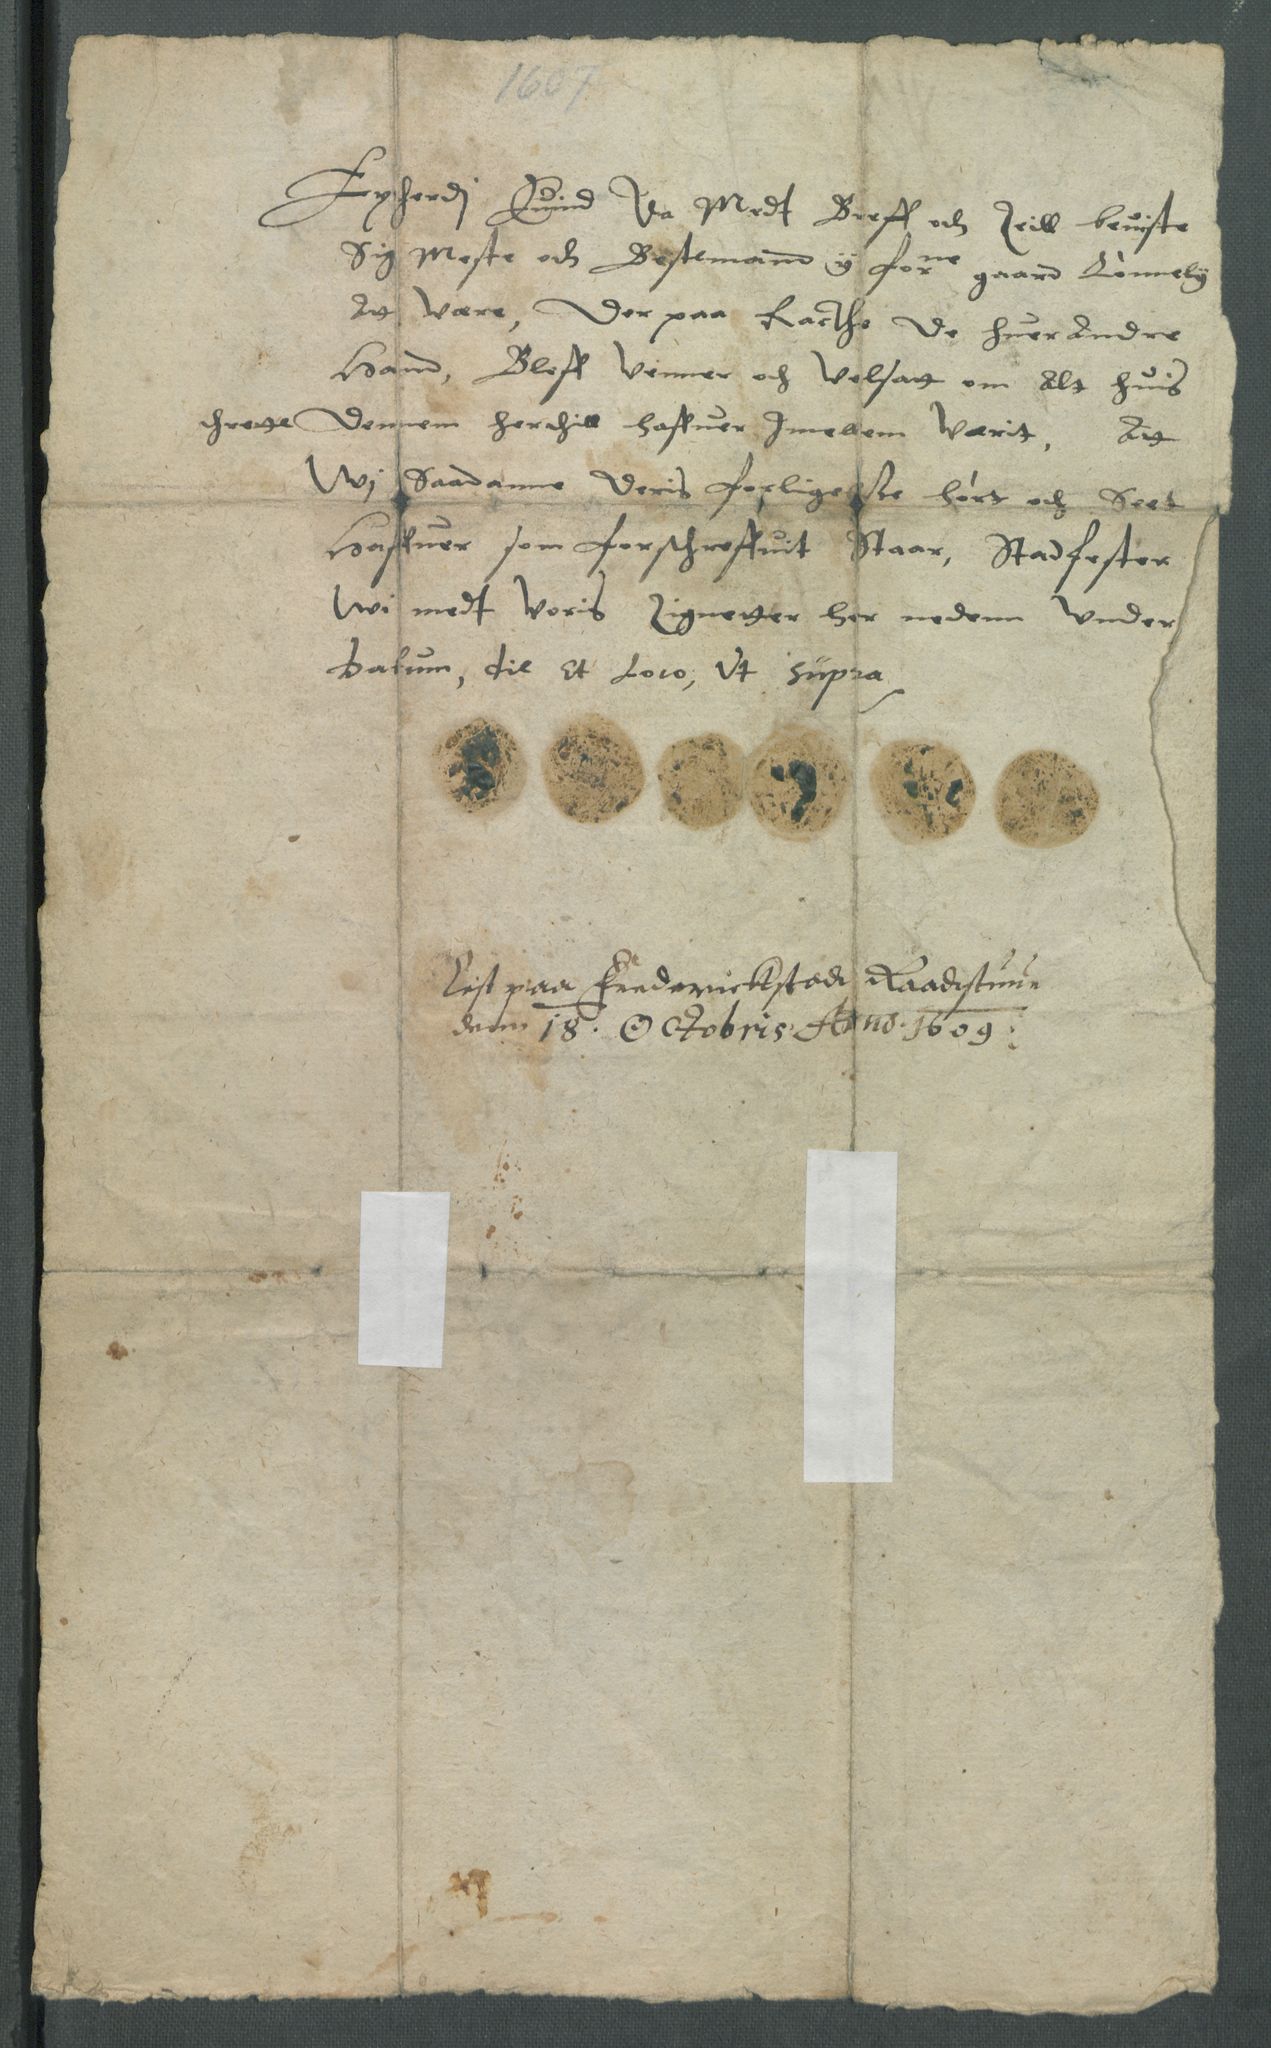 1607
Kund Da Medt Breff och Zeill beuiste
Sig Meste och Bestemand ÿ forne gaard Lònnelÿ
At Være, Der paa Racthe De huer Andre
Haand, Bleff Venner och Velsatt om Alt huis
trette Dennem her till haffuer Imellem Værit, Att
Wi Saadanne Deris forligelse hört och Seet
Haffuer som forschreffuit Staar, Stadfester
Wi medt Voris Zignetter her nedenn Vnder
Datum, die Et Loco, Vt süpra
Lest paa Frederickstads Raadstuue
denn 18. Octobris Anno 1609